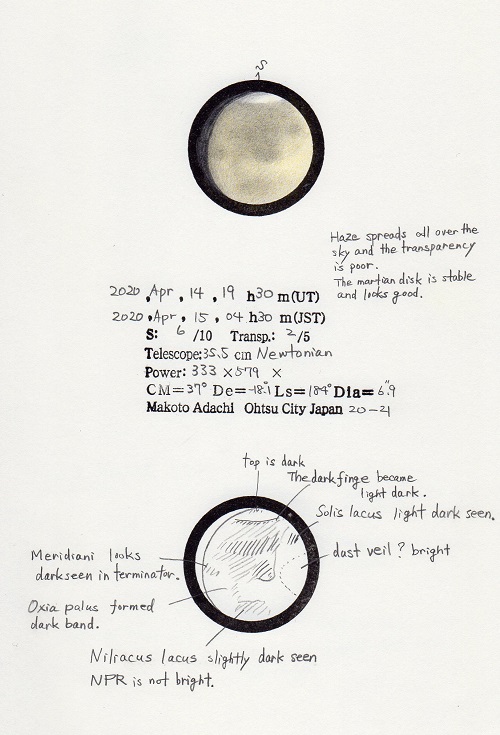 S
Haze spreads all over the
sky and the transparency
is poor.
The martian disk is stable
and looks good.
2020 , Apr , 14 , 19 h 30 m (UT)
2020 , Apr , 15 , 04 h 30 m (JST)
S: 6 /10 Transp.: 2/5
Telescope: 35.5 cm Newtonian
Power: 333 × 579 ×
CM=37° De=-18.1° Ls=184° Dia=6."9
Makoto Adachi Ohtsu City Japan 20-21
top is dark
The dark finge became
light dark.
Solis lacus light dark seen.
Meridiani looks
dark seen in terminator.
dust veil ? bright
Oxia palus formed
dark band.
Niliacus lacus slightly dark seen
NPR is not bright.